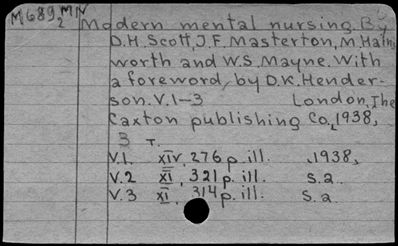 M689₂MN Modern mental nursing. By
D.H. Scott, J.F. Masterton, M. Hath
worth and W.S. Mayne. With
a foreword by D.K. Hender-
son. V.1-3 London, The
Caxton publishing Co., 1938,
3 T.
V.1. XIV, 276 p. ill. 1938,
V.2 XI, 321 p. ill. S.a.
V.3 XI, 314 p. ill. S.a.